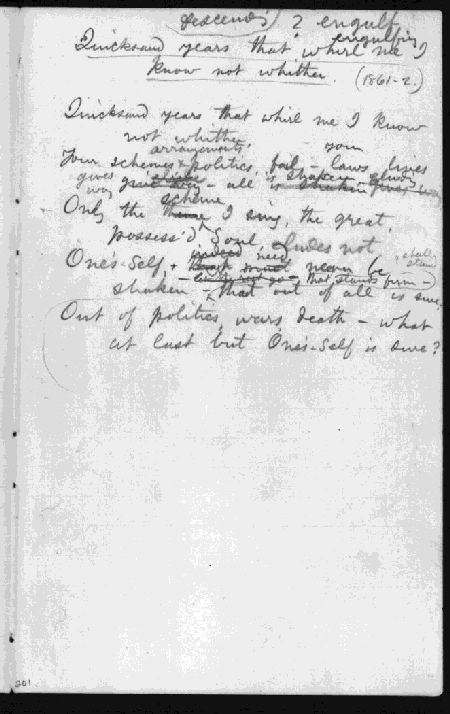 descends / 2 engulf
engulfing
Quicksand years that whirl me I
know not whither. (1861-2.)
Quicksand years that whirl me I know
not whither
arrangements, your
Your schemes & politics fail - lines
gives way - all is shaken
way
scheme
Only the theme I sing, the great,
possess'd Soul, eludes not
indeed need
One's-Self, + must never be
shall stand
that stands firm -
shaken - that out of all is sure,
Out of politics, wars, death - what
at last but One's-Self is sure?
201